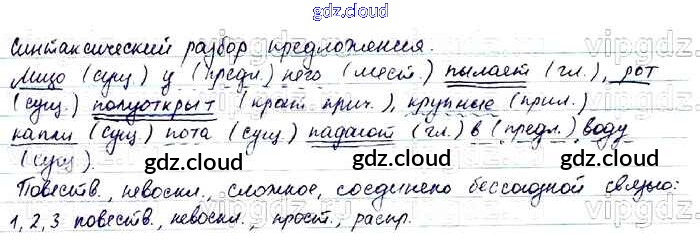 gdz.cloud
Синтаксический разбор предложения.
Лицо (сущ.) у (предл.) него (мест.) пылает (гл.), рот
(сущ.) полуоткрыт (крат. прич.), крупные (прил.)
капли (сущ.) пота (сущ.) падают (гл.) в (предл.) воду
(сущ.).
gdz.cloud gdz.cloud gdz.cloud
Повеств., невоскл., сложное, соединено бессоюзной связью:
1, 2, 3 повеств., невоскл., прост., распр.